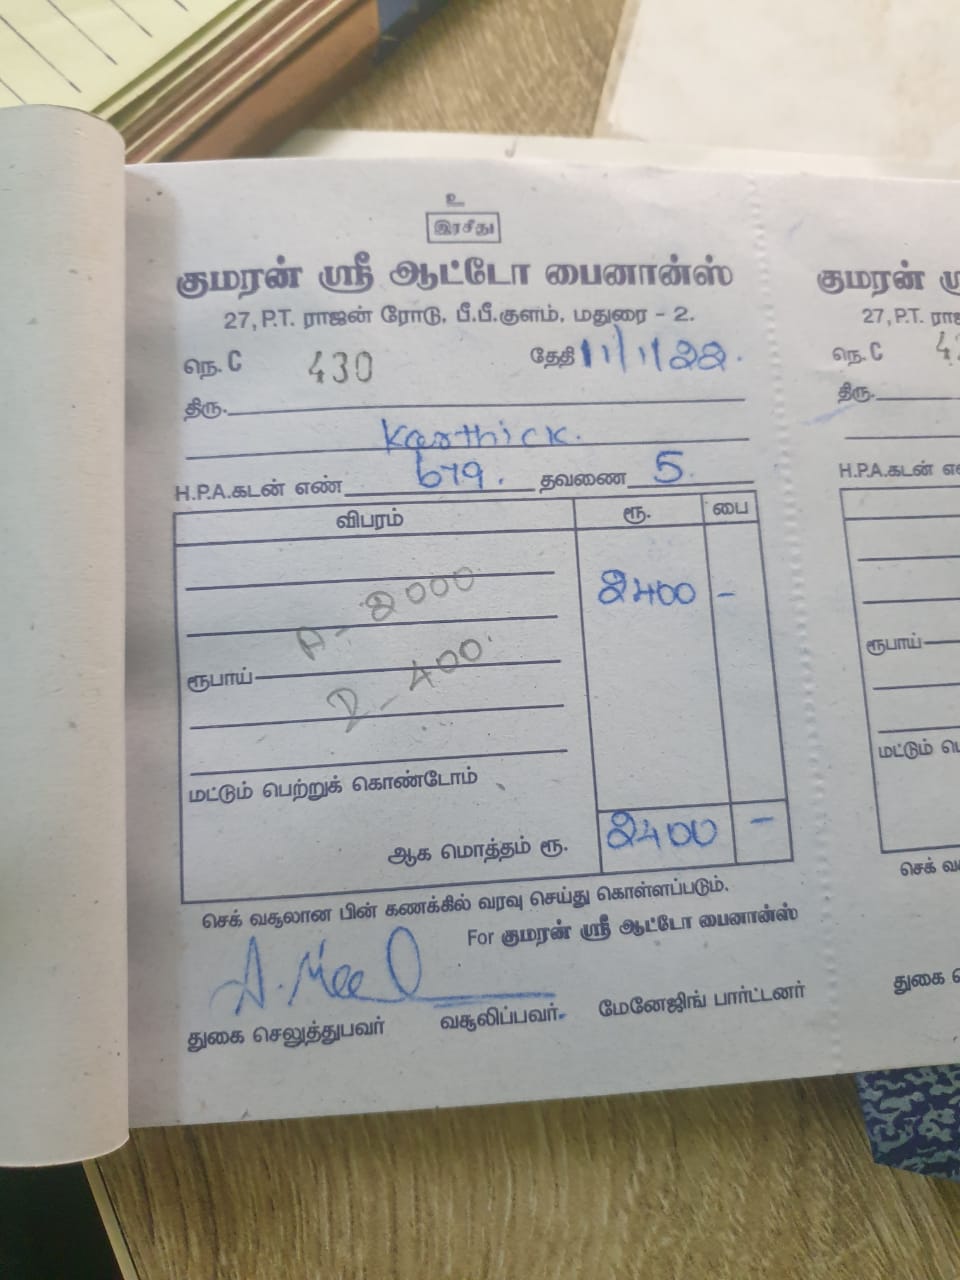 உ
இரசீது
குமரன் ஸ்ரீ ஆட்டோ பைனான்ஸ்
27, P.T. ராஜன் ரோடு, பீ.பீ.குளம், மதுரை - 2.
நெ. C 430 தேதி 11/1/22.
திரு.
Karthick.
H.P.A.கடன் எண் 679. தவணை 5.
விபரம் ரூ. பை
2400 -
A - 2000
ரூபாய்
D - 400
மட்டும் பெற்றுக் கொண்டோம்
ஆக மொத்தம் ரூ. 2400 -
செக் வசூலான பின் கணக்கில் வரவு செய்து கொள்ளப்படும்.
For குமரன் ஸ்ரீ ஆட்டோ பைனான்ஸ்
துகை செலுத்துபவர் வசூலிப்பவர். மேனேஜிங் பார்ட்னர்
குமரன்
27, P.T.
நெ. C
திரு.
H.P.A.கடன்
ரூபாய்
மட்டும்
செக்
துகை